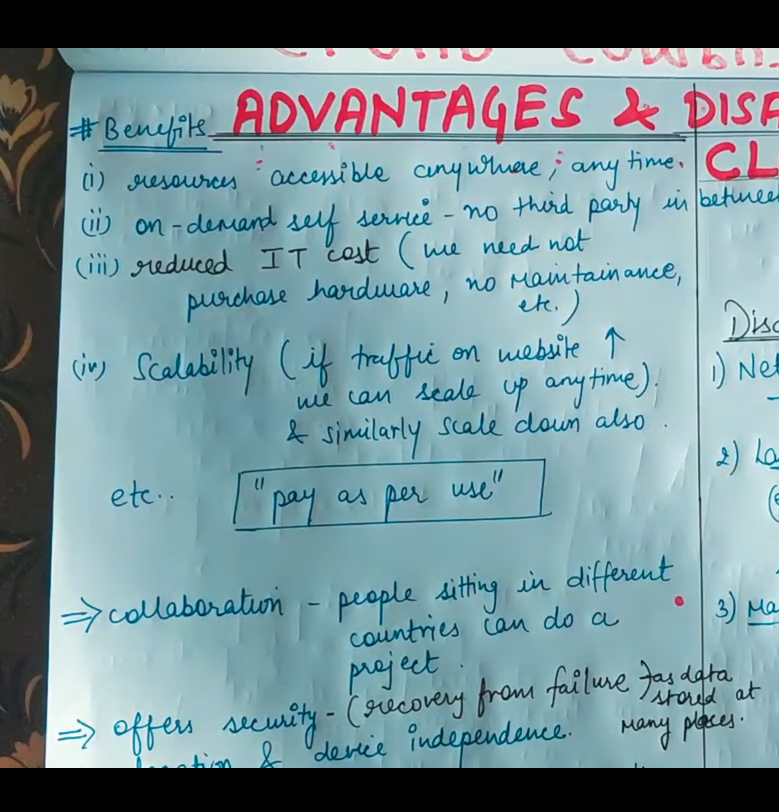 ADVANTAGES & DISA
CL
# Benefits
(i) resources accessible anywhere, any time.
(ii) on-demand self service - no third party in between
(iii) reduced IT cost (we need not
purchase hardware, no maintainance,
etc.)
(iv) Scalability (if traffic on website ↑
we can scale up anytime).
& similarly scale down also.
etc..
"pay as per use"
⇒ collaboration - people sitting in different
countries can do a
project.
⇒ offers security - (recovery from failure) as data
stored at
many places.
& device independence.
Disa
1) Net
2) La
3) Ma